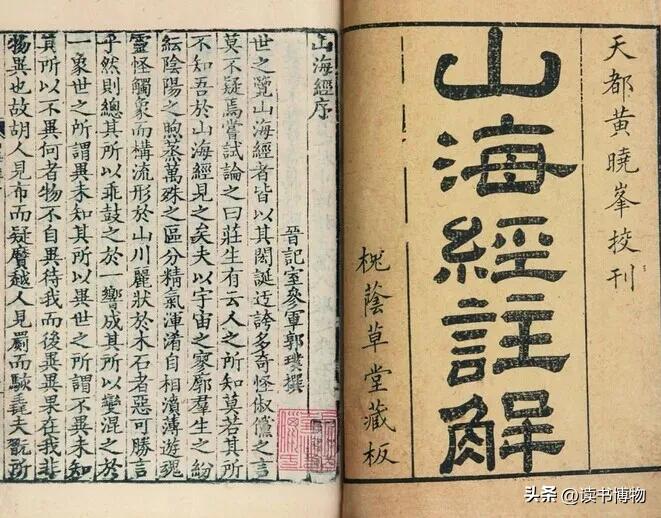 天都黃曉峯挍刊
山海經註解
槐蔭草堂藏板
山海經序
晉記室參軍郭璞撰
世之覽山海經者皆以其閎誕迃誇多奇怪俶儻之言
莫不疑焉嘗試論之曰莊生有云人之所知莫若其所
不知吾於山海經見之矣夫以宇宙之寥廓羣生之紛
紜陰陽之煦蒸萬殊之區分精氣渾淆自相濆薄遊魂
靈怪觸象而構流形於山川麗狀於木石者惡可勝言
乎然則總其所以乖鼓之於一響成其所以變混之於
一象世之所謂異未知其所以異世之所謂不異未知
其所以不異何者物不自異待我而後異異果在我非
物異也故胡人見布而疑黂越人見罽而駭毳夫翫所
头条 @读书博物